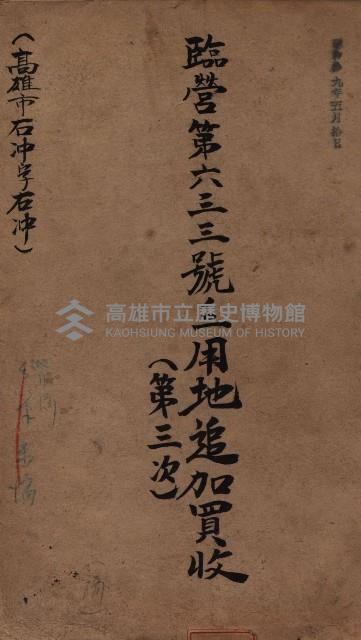 九年五月拾日
臨營第六三三號 用地追加買收
(第三次)
(高雄市右冲字右冲)
高雄市立歷史博物館
KAOHSIUNG MUSEUM OF HISTORY